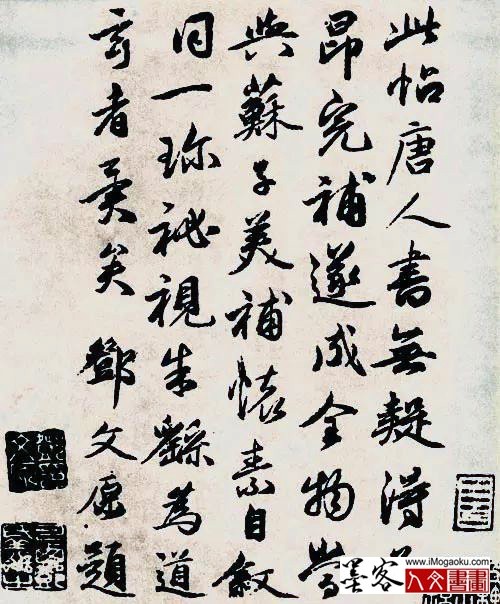 此帖唐人書無疑得
昂完補遂成全物當
與蘇子美補懷素自敘
同一珍祕視朱繇為道
玄者異矣 鄧文原題
墨客
www.iMogaoku.com
人文書畫